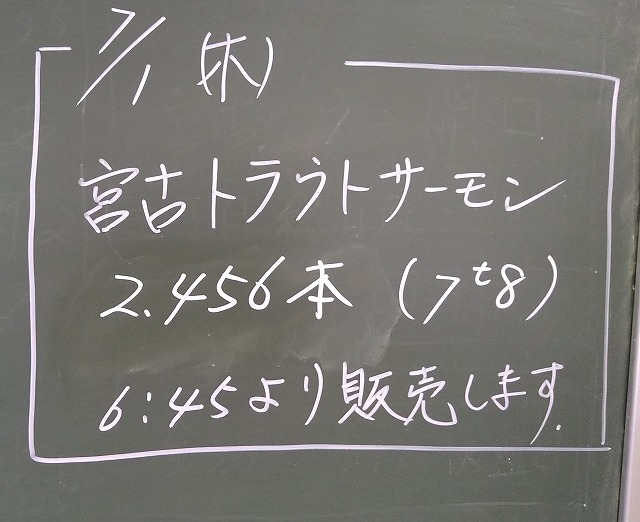 7/1 (木)
宮古トラウトサーモン
2.456本 (7t8)
6:45より販売します.